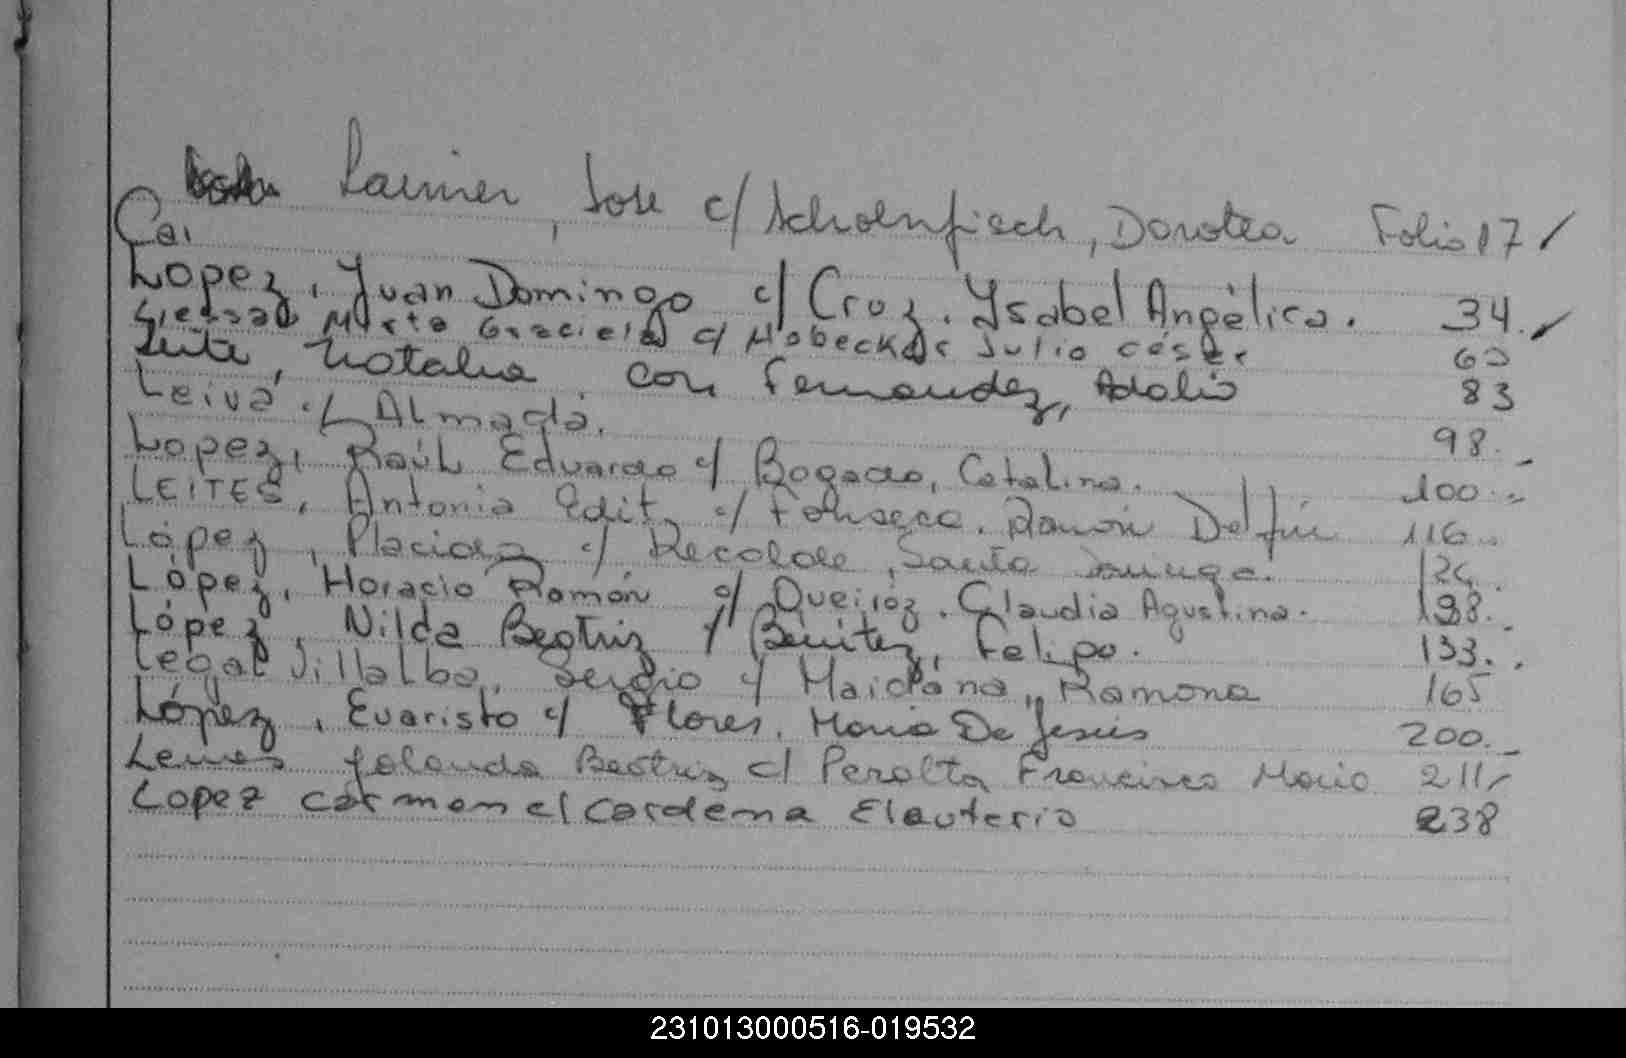 Laimer, Jose c/ Schoenfisch, Dorotea Folio 17 /
Ca.
Lopez, Juan Domingo c/ Cruz. Ysabel Angélica. 34.
Mirta Graciela c/ Hobecker Julio césar 60
Leite, Natalia con Fernandez, Adolio 83
Leiva c/ Almada. 98.
Lopez, Raúl Eduardo c/ Bogado, Catalina. 100.
LEITES, Antonia Edit c/ Fonseca. Ramón Delfin 116
López, Placidez c/ Recalde, Santa 124.
López, Horacio Ramón c/ Queiróz. Claudia Agustina. 128.
López, Nilda Beatriz c/ Benitez, Felipo. 133.
Legal Villalba, Sergio c/ Maidana, Ramona 165
López, Evaristo c/ Flores, Maria De Jesús 200.
Lemes Yolanda Beatriz c/ Peralta Francisco Mario 211
Lopez Carmen c/ Cardema Elauterio 238
231013000516-019532